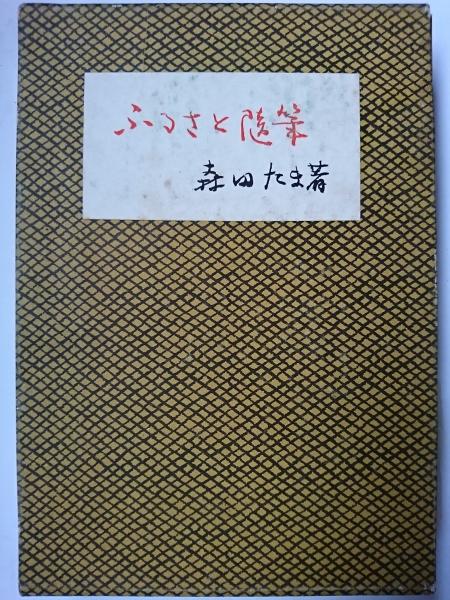 ふるさと隨筆
森田たま著